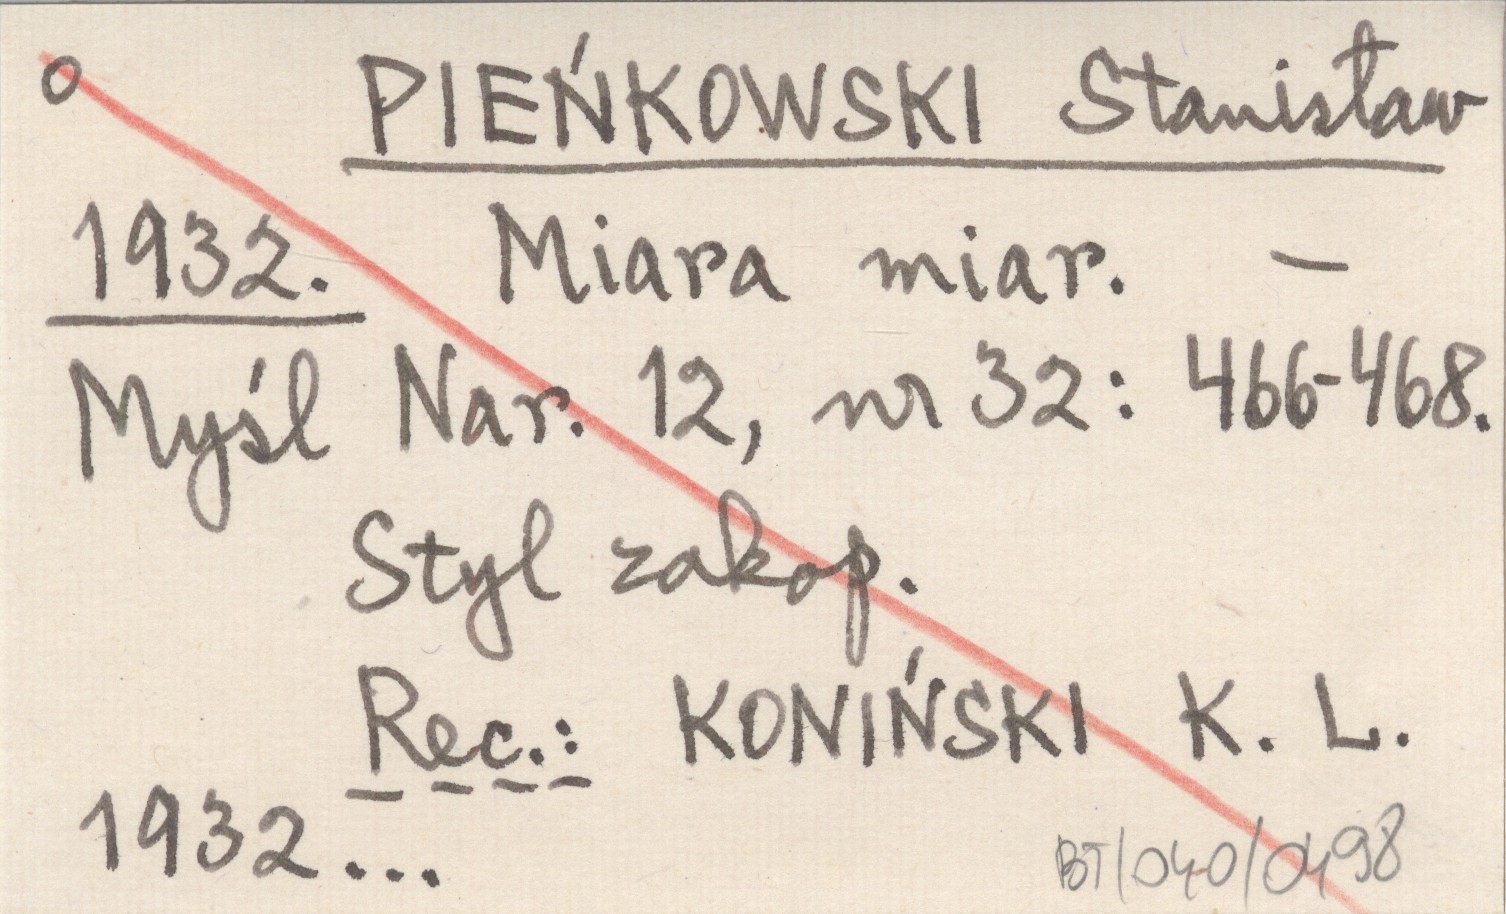 o PIEŃKOWSKI Stanisław
1932. Miara miar. –
Myśl Nar. 12, nr 32: 466-468.
Styl zakop.
Rec.: KONIŃSKI K. L.
1932...
BT/040/0498